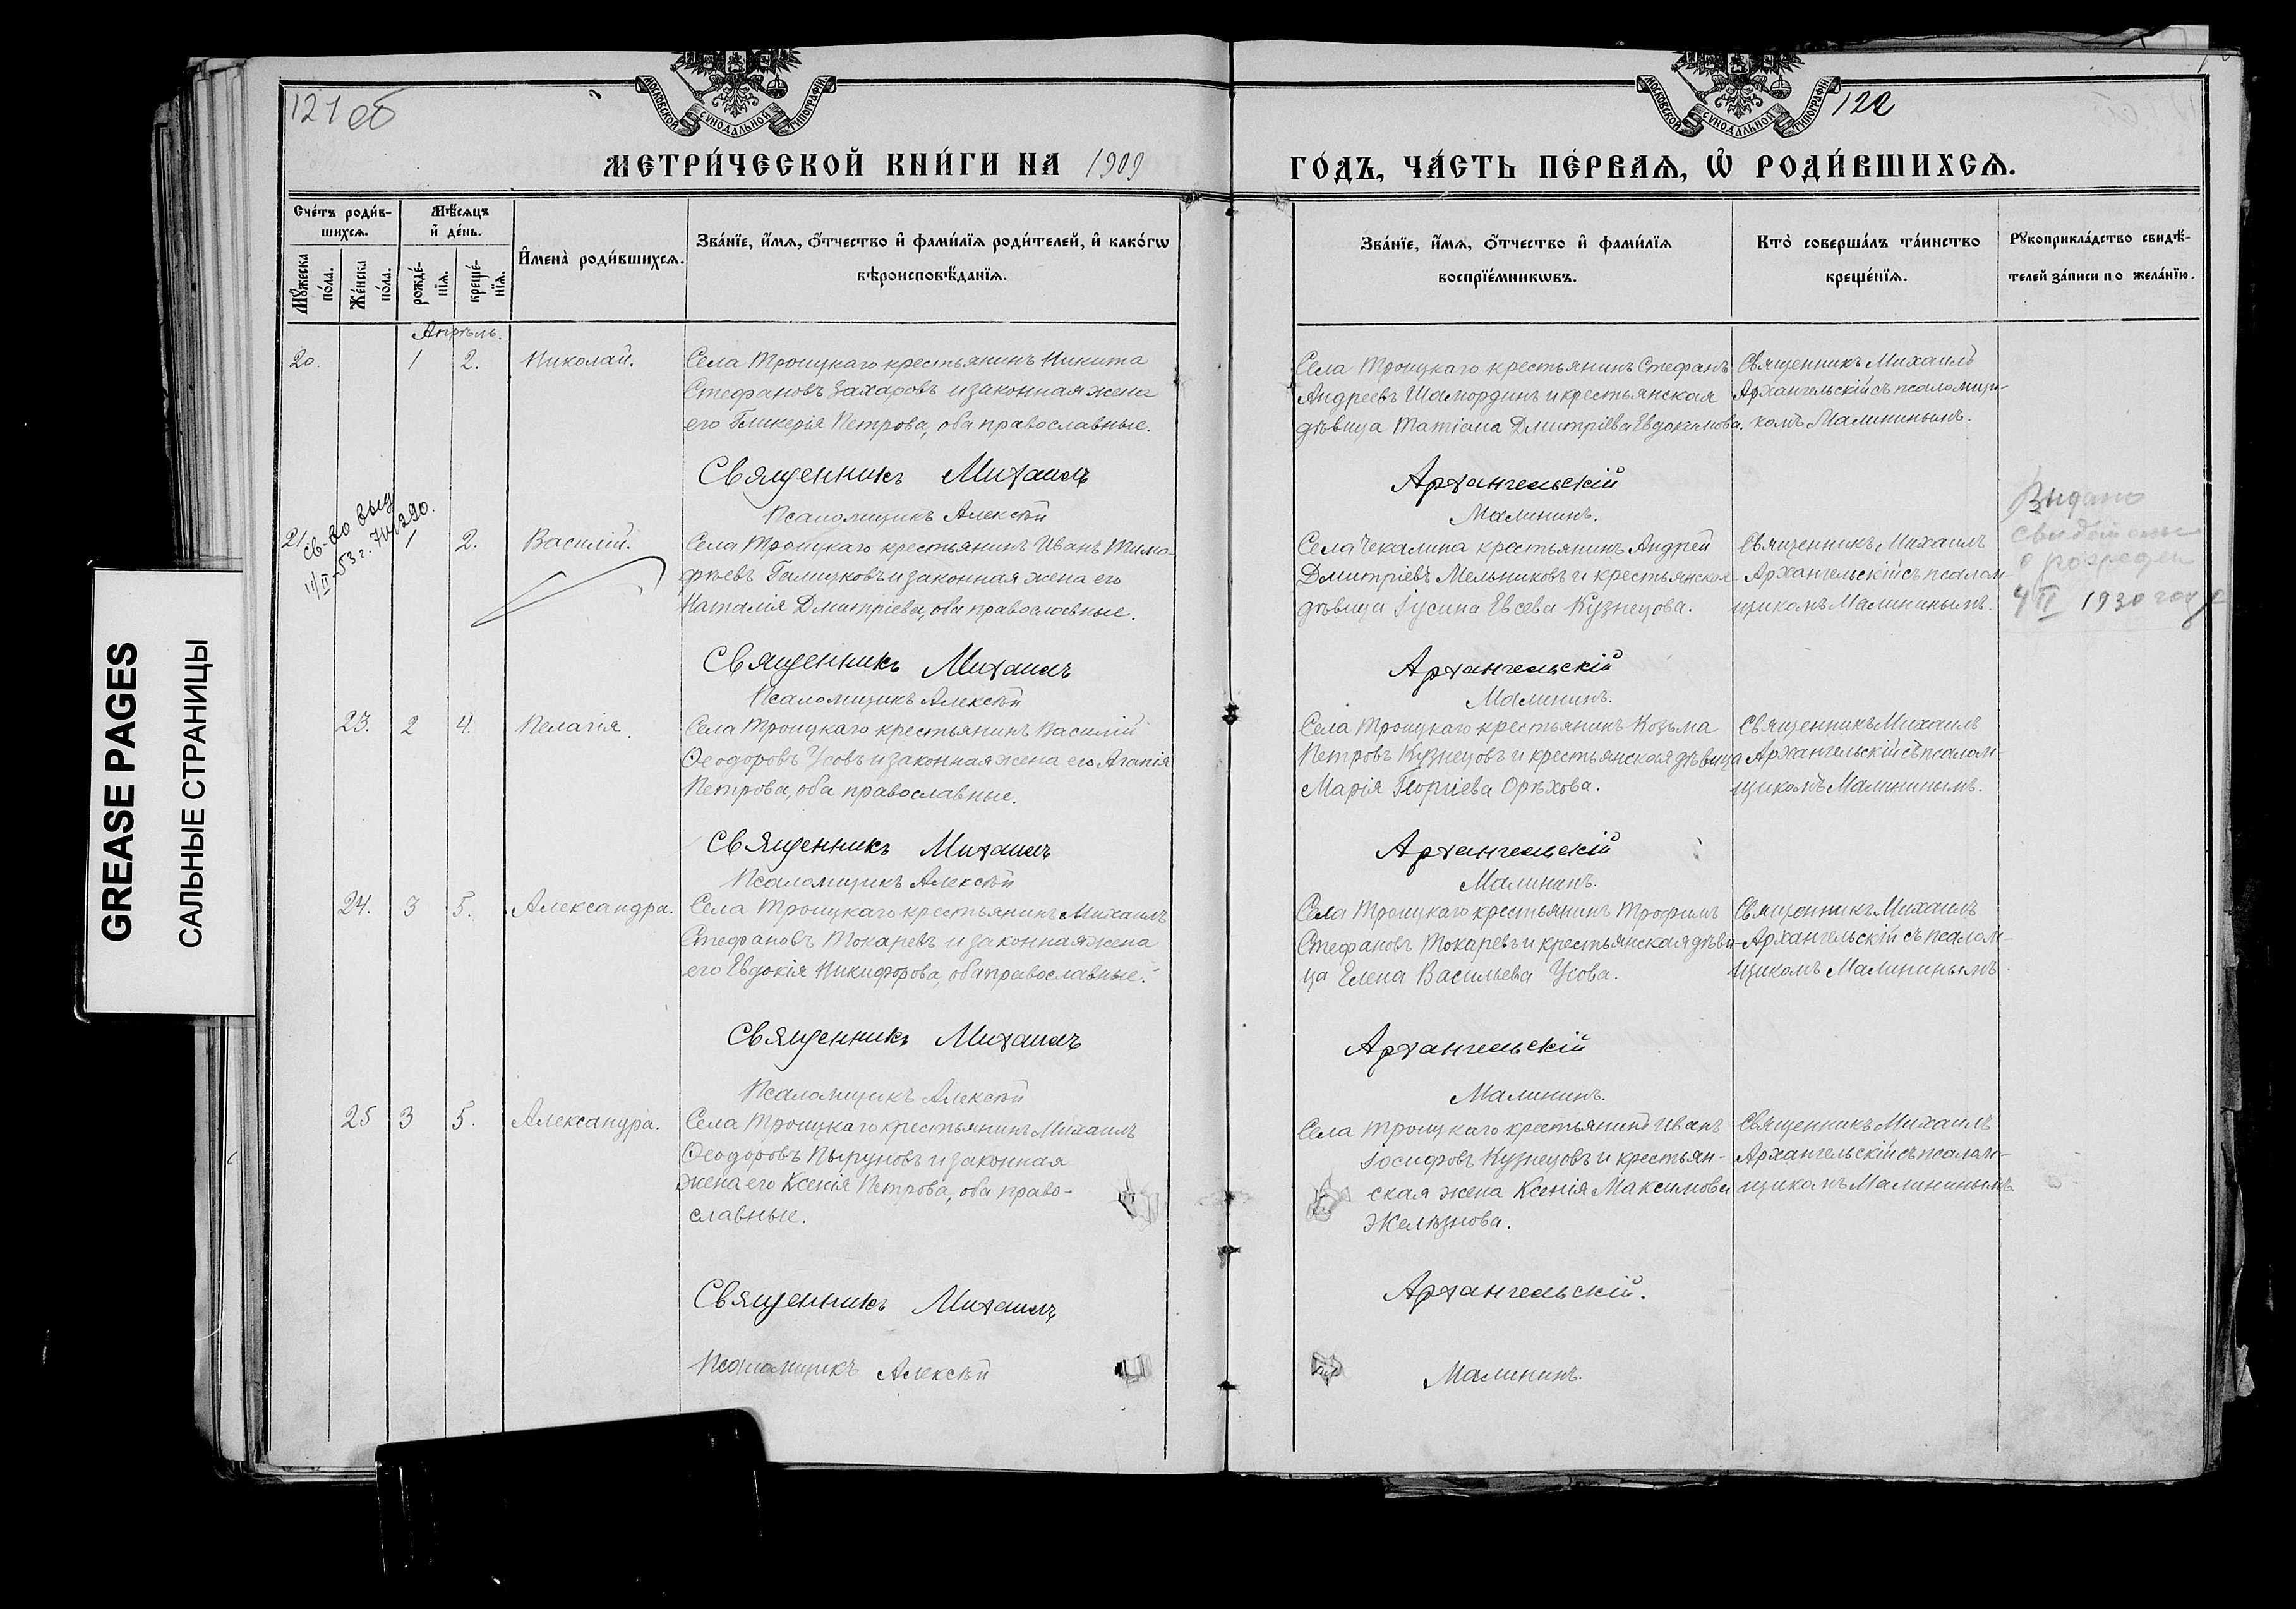 121 об
122
МОСКОВСКОЙ СѴНОДАЛЬНОЙ ТИПОГРАФІИ
МОСКОВСКОЙ СѴНОДАЛЬНОЙ ТИПОГРАФІИ
МЕТРИ́ЧЕСКОЙ КНИ́ГИ НА 1909
ГО́ДЪ, ЧА́СТЬ ПЕ́РВАЯ, Ѡ҆ РОДИ́ВШИХСЯ.
Сче́тъ роди́в-
шихсѧ.
Мꙋ́жеска по́ла.
Же́нска по́ла.
Мѣ́сѧцъ
и҆ де́нь.
рожде́-
нїѧ.
креще́-
нїѧ.
И҆мена̀ роди́вшихсѧ.
Зва́нїе, и҆́мѧ, ѻ҆́тчество и҆ фами́лїѧ роди́телей, и҆ како́гѡ
вѣроисповѣ́данїѧ.
Зва́нїе, и҆́мѧ, ѻ҆́тчество и҆ фами́лїѧ
воспрїе́мникѡвъ.
Кто̀ соверша́лъ та́инство
креще́нїѧ.
Рꙋкоприкла́дство свидѣ́-
телей за́писи по жела́нїю.
Апрѣль.
20.
1
2.
Николай.
Села Троицкаго крестьянинъ Никита
Стефановъ Захаровъ и законная жена
его Гликерія Петрова, оба православные.
Села Троицкаго крестьянинъ Стефанъ
Андреевъ Шамординъ и крестьянская
дѣвица Татіана Дмитріева Евдокимова.
Священникъ Михаилъ
Архангельскій съ псаломщи-
комъ Малининымъ.
Священникъ Михаилъ
Архангельскій
Псаломщикъ Алексѣй
Малининъ.
21.
св-во выд
11/II-53 г.
1
2.
Василій.
Села Троицкаго крестьянинъ Иванъ Тимо-
фѣевъ Галицковъ и законная жена его
Наталія Дмитріева, оба православные.
Села Чекалина крестьянинъ Андрей
Дмитріевъ Мельниковъ и крестьянская
дѣвица Іусина Евсева Кузнецова.
Священникъ Михаилъ
Архангельскій съ псалом-
щикомъ Малининымъ.
Выдано
свидѣтель
о рожден
4 II 1930 году
Священникъ Михаилъ
Архангельскій
Псаломщикъ Алексѣй
Малининъ.
23.
2
4.
Пелагія.
Села Троицкаго крестьянинъ Василій
Ѳеодоровъ Усовъ и законная жена его Агапія
Петрова, оба православные.
Села Троицкаго крестьянинъ Козьма
Петровъ Кузнецовъ и крестьянская дѣвица
Марія Георгіева Орѣхова.
Священникъ Михаилъ
Архангельскій съ псалом-
щикомъ Малининымъ.
Священникъ Михаилъ
Архангельскій
Псаломщикъ Алексѣй
Малининъ.
24.
3
5.
Александра.
Села Троицкаго крестьянинъ Михаилъ
Стефановъ Токаревъ и законная жена
его Евдокія Никифорова, оба православные.
Села Троицкаго крестьянинъ Трофимъ
Стефановъ Токаревъ и крестьянская дѣви-
ца Елена Васильева Усова.
Священникъ Михаилъ
Архангельскій съ псалом-
щикомъ Малининымъ
Священникъ Михаилъ
Архангельскій
Псаломщикъ Алексѣй
Малининъ.
25
3
5.
Александра.
Села Троицкаго крестьянинъ Михаилъ
Ѳеодоровъ Пыруновъ и законная
жена его Ксенія Петрова, оба право-
славные.
Села Троицкаго крестьянинъ Иванъ
Іосифовъ Кузнецовъ и крестьян-
ская жена Ксенія Максимова
Желѣзнова.
Священникъ Михаилъ
Архангельскій съ псалом-
щикомъ Малининымъ
Священникъ Михаилъ
Архангельскій.
Псаломщикъ Алексѣй
Малининъ.
GREASE PAGES
САЛЬНЫЕ СТРАНИЦЫ